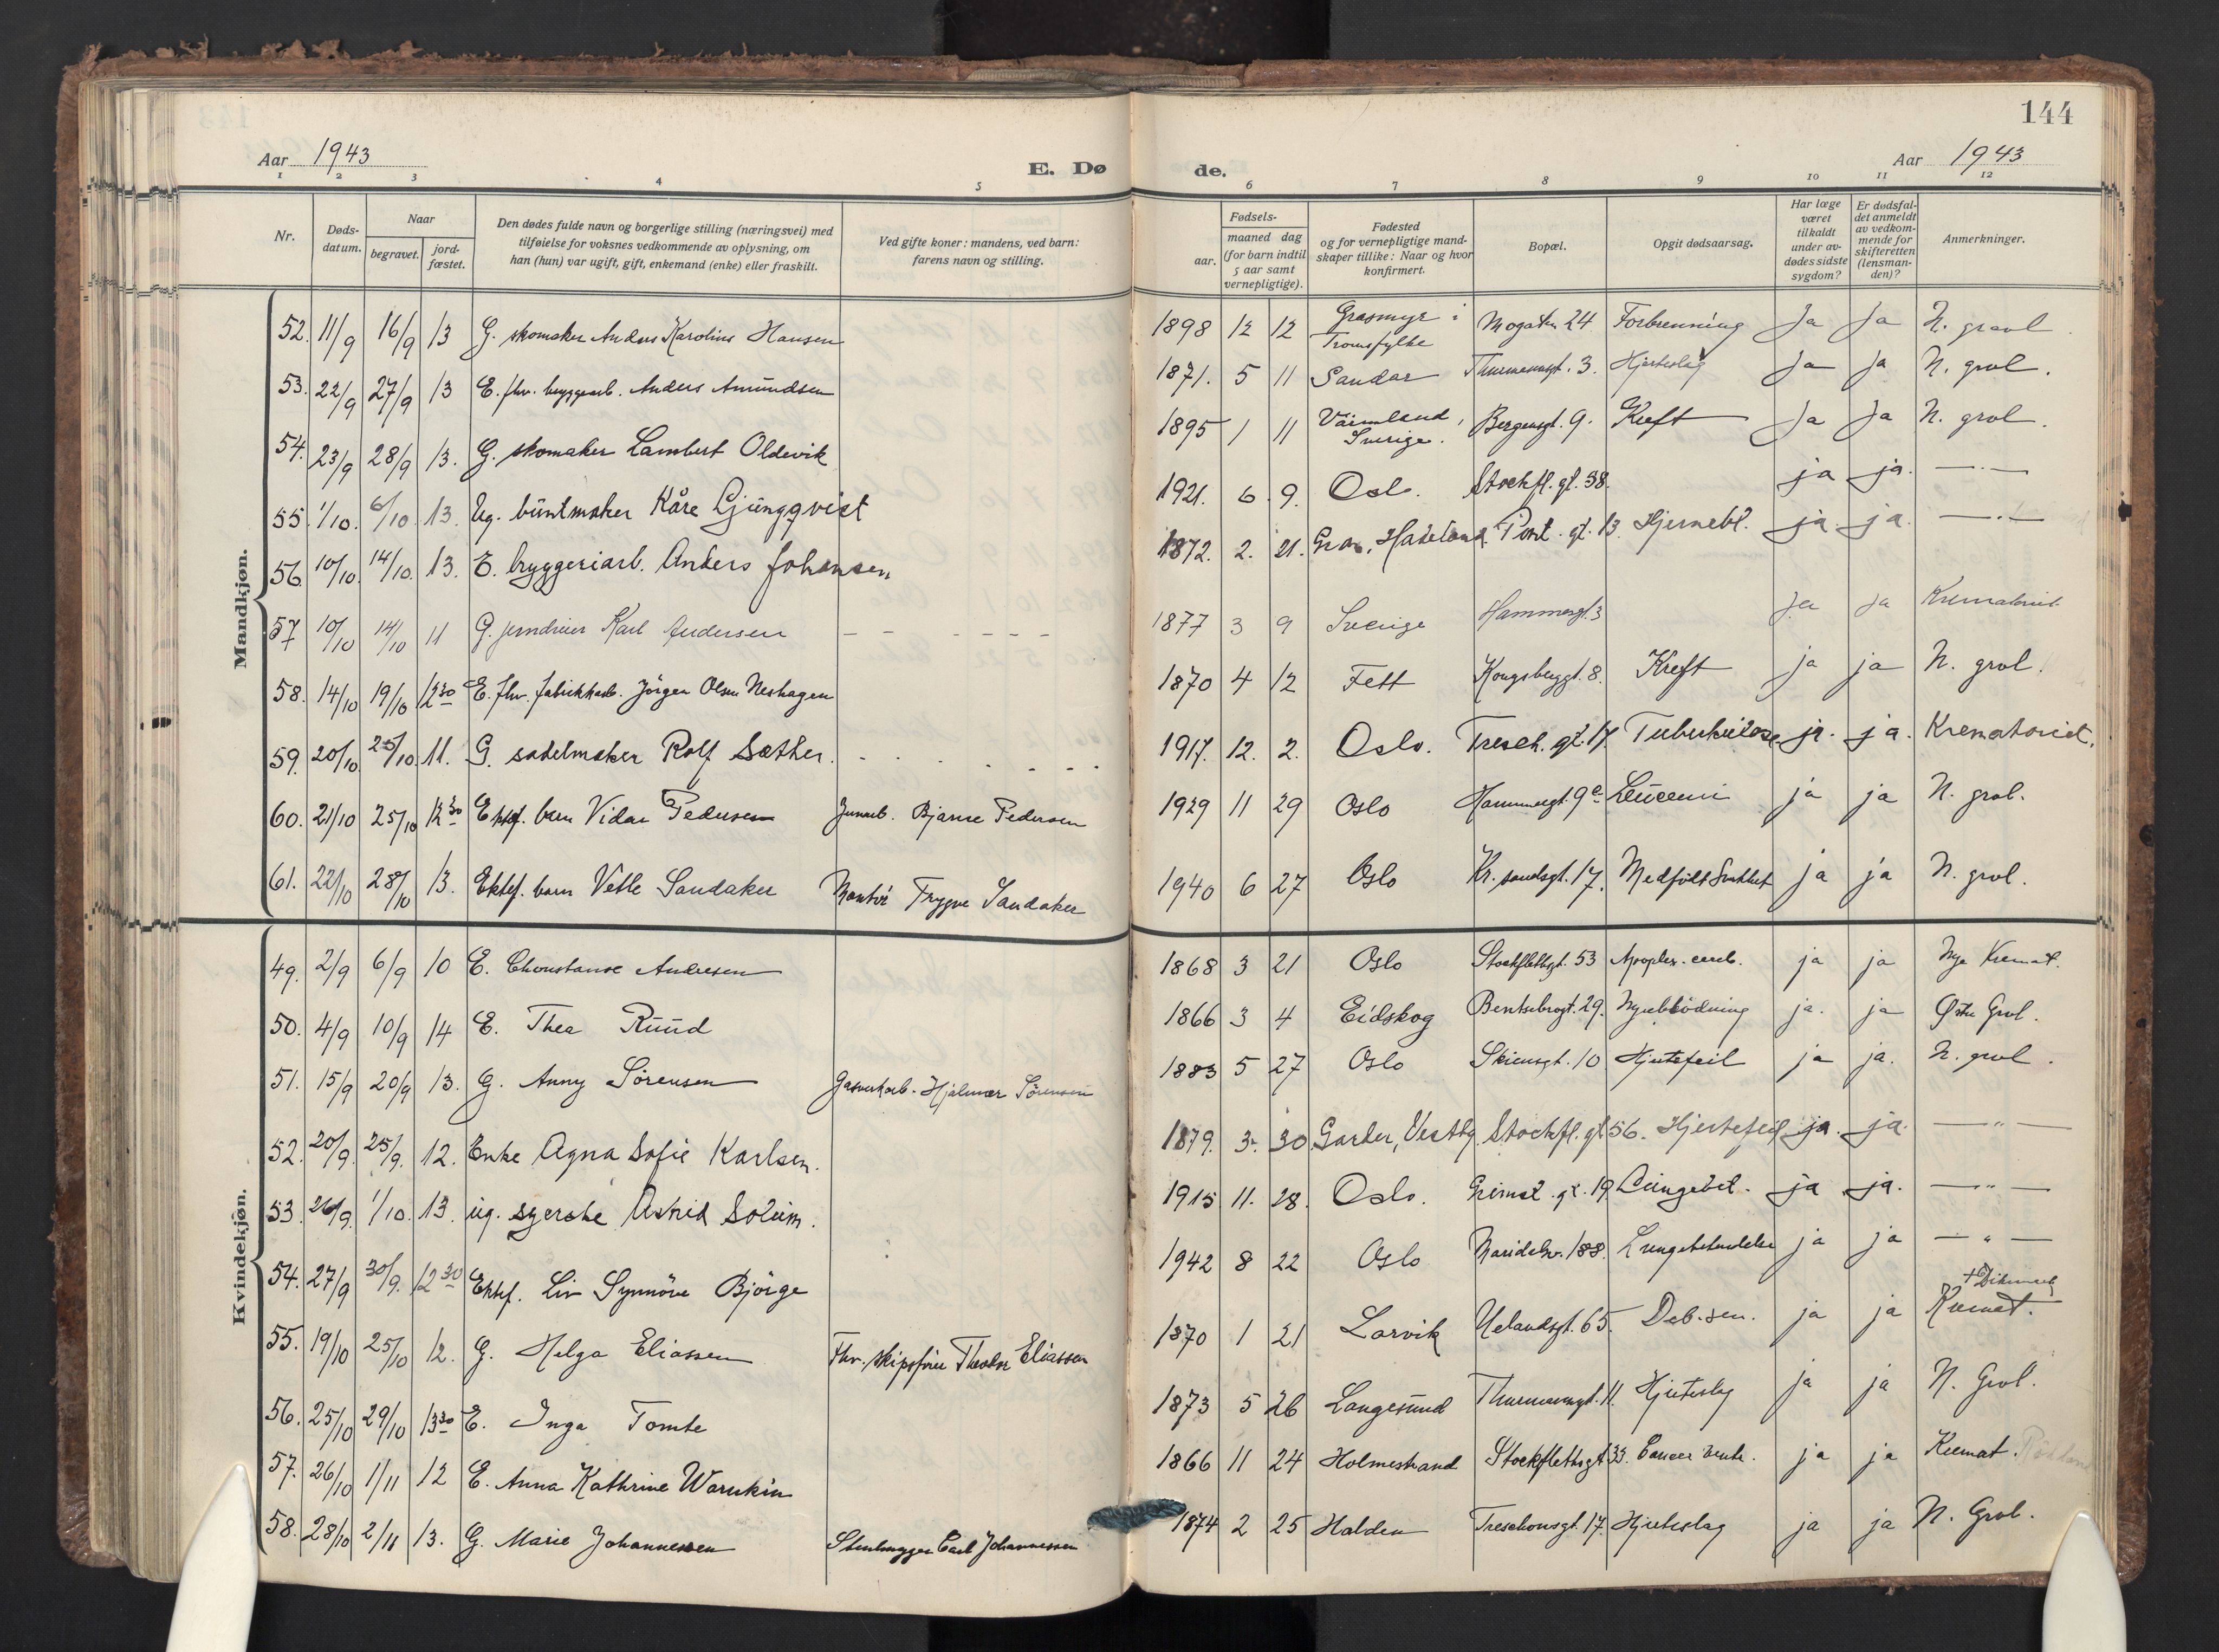 144
Aar 1943
E. Døde.
Aar 1943
1 2 3 4 5 6 7 8 9 10 11 12
Nr.
Døds-datum.
Naar
begravet.
jord-fæstet.
Den dødes fulde navn og borgerlige stilling (næringsvei) med
tilføielse for voksnes vedkommende av oplysning, om
han (hun) var ugift, gift, enkemand (enke) eller fraskilt.
Ved gifte koner: mandens, ved barn:
farens navn og stilling.
Fødsels-
aar.
maaned dag
(for barn indtil
5 aar samt
vernepligtige).
Fødested
og for vernepligtige mand-
skaper tillike: Naar og hvor
konfirmert.
Bopæl.
Opgit dødsaarsag.
Har læge
været
tilkaldt
under av-
dødes sidste
sygdom?
Er dødsfal-
det anmeldt
av vedkom-
mende for
skifteretten
(lensman-
den)?
Anmerkninger.
Mandkjøn.
52. 11/9 16/9 13 G. skomaker Anders Karolius Hansen 1898 12 12 Grasmyr i Tromsfylke Mogaten 24 Forbrenning Ja Ja N. gravl.
53. 22/9 27/9 13 E. fhv. bryggearb. Anders Amundsen 1871. 5 11 Sandar Thurmannsgt. 3. Hjerteslag Ja ja N. gravl.
54. 23/9 28/9 13. G. skomaker Lambert Oldevik 1895 1 11 Värmland, Sverige. Bergensgt. 9. Kreft Ja Ja N. gravl.
55. 1/10. 6/10 13. Ug. buntmaker Kåre Ljungqvist 1921. 6. 9. Oslo. Stockfl. gt. 38. ja ja. — . —
56. 10/10. 14/10. 13. E. bryggeriarb. Anders Johansen 1872. 2. 21. Gran, Hadeland. Pont. gt. 13 Hjernebl. ja ja. — . —
57 10/10 14/10 11 G. jerndreier Karl Andersen — — — — — — 1877 3 9 Sverige Hammersgt. 3 Ja Ja Krematoriet
58. 14/10 19/10 12 30 E. fhv. fabrikkarb. Jörgen Olsen Neshagen 1870 4 12 Fett Kongsberggt. 8. Kreft ja ja N. gravl.
59. 20/10 25/10 11. G. sadelmaker Rolf Sæther. 1917. 12. 2. Oslo. Tresch. gt. 17. Tuberkulose ja. ja. Krematoriet.
60. 21/10 25/10 12 30 Ektef. barn Vidar Pedersen Jernarb. Bjarne Pedersen 1929 11 29 Oslo Hammersgt. 9 Leucemi ja ja N. gravl.
61. 22/10 28/10 13. Ektef. barn Vetle Sandaker Montör Trygve Sandaker 1940 6 27 Oslo Kr. sandsgt. 17. Medfödt Svakhet ja ja N. gravl.
Kvindekjøn.
49. 2/9 6/9 10 E. Andresen 1868 3 21 Oslo Stockflethsgt. 53 Apoplex. cereb. ja ja Nye Kremat.
50. 4/9 10/9 14 E. Thea Ruud 1866 3 4 Eidskog Bentsebrogt. 29. Nyreblödning ja. ja Østre Gravl.
51. 15/9 20/9 13. G. Anny Sörensen Gasverkarb. Hjalmar Sörensen 1883 5 27 Oslo Skiensgt. 10 Hjertefeil ja ja. N. gravl.
52. 20/9. 25/9. 12. Enke Agna Sofie Karlsen. 1879. 3. 30. Garder, Vestby Stockfl. gt 56. Hjertefeil ja. ja. — " —
53. 26/9. 1/10. 13. ug. syerske Astrid Solum. 1915 11. 28. Oslo. Grimst. gt. 19 Lungebet. ja ja. — " —
54. 27/9 30/9. 12 30 Ektef. Liv Synnöve Björge 1942 8 22 Oslo Maridalsv. 188. Lungebetendelse ja ja — " —
55. 19/10 25/10 12. G. Helga Eliassen Fhv. skipsförer Theodor Eliassen 1870 1 21 Larvik Uelandsgt. 65. Deb. sen. ja ja Kremat. + Dikemark
56. 25/10 29/10 13 30 E. Inga Tomte 1873 5 26 Langesund Thurmannsgt. 11. Hjerteslag ja ja N. Gravl.
57. 26/10 1/11 12 E. Anna Kathrine Warukin 1866 11 24 Holmestrand Stockflethsgt 33. Cancer ventr. ja ja Kremat.
58. 28/10 2/11 13. G. Marie Johannessen Stenhugger Carl Johannessen 1874 2 25 Halden Treschowsgt. 17. Hjerteslag ja ja N. Gravl.